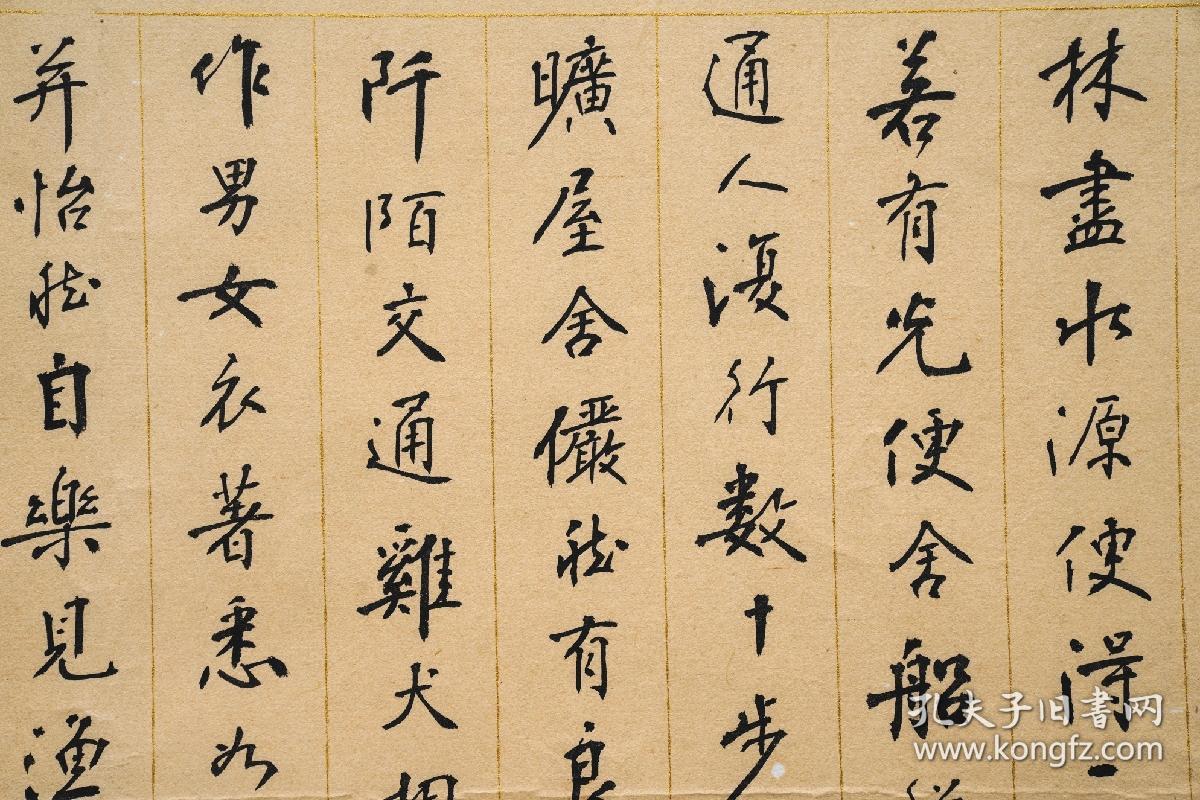 林盡水源便得一
若有光便舍船從
通人復行數十步
曠屋舍儼然有良
阡陌交通雞犬相
作男女衣著悉如
并怡然自樂見漁
孔夫子旧书网
www.kongfz.com